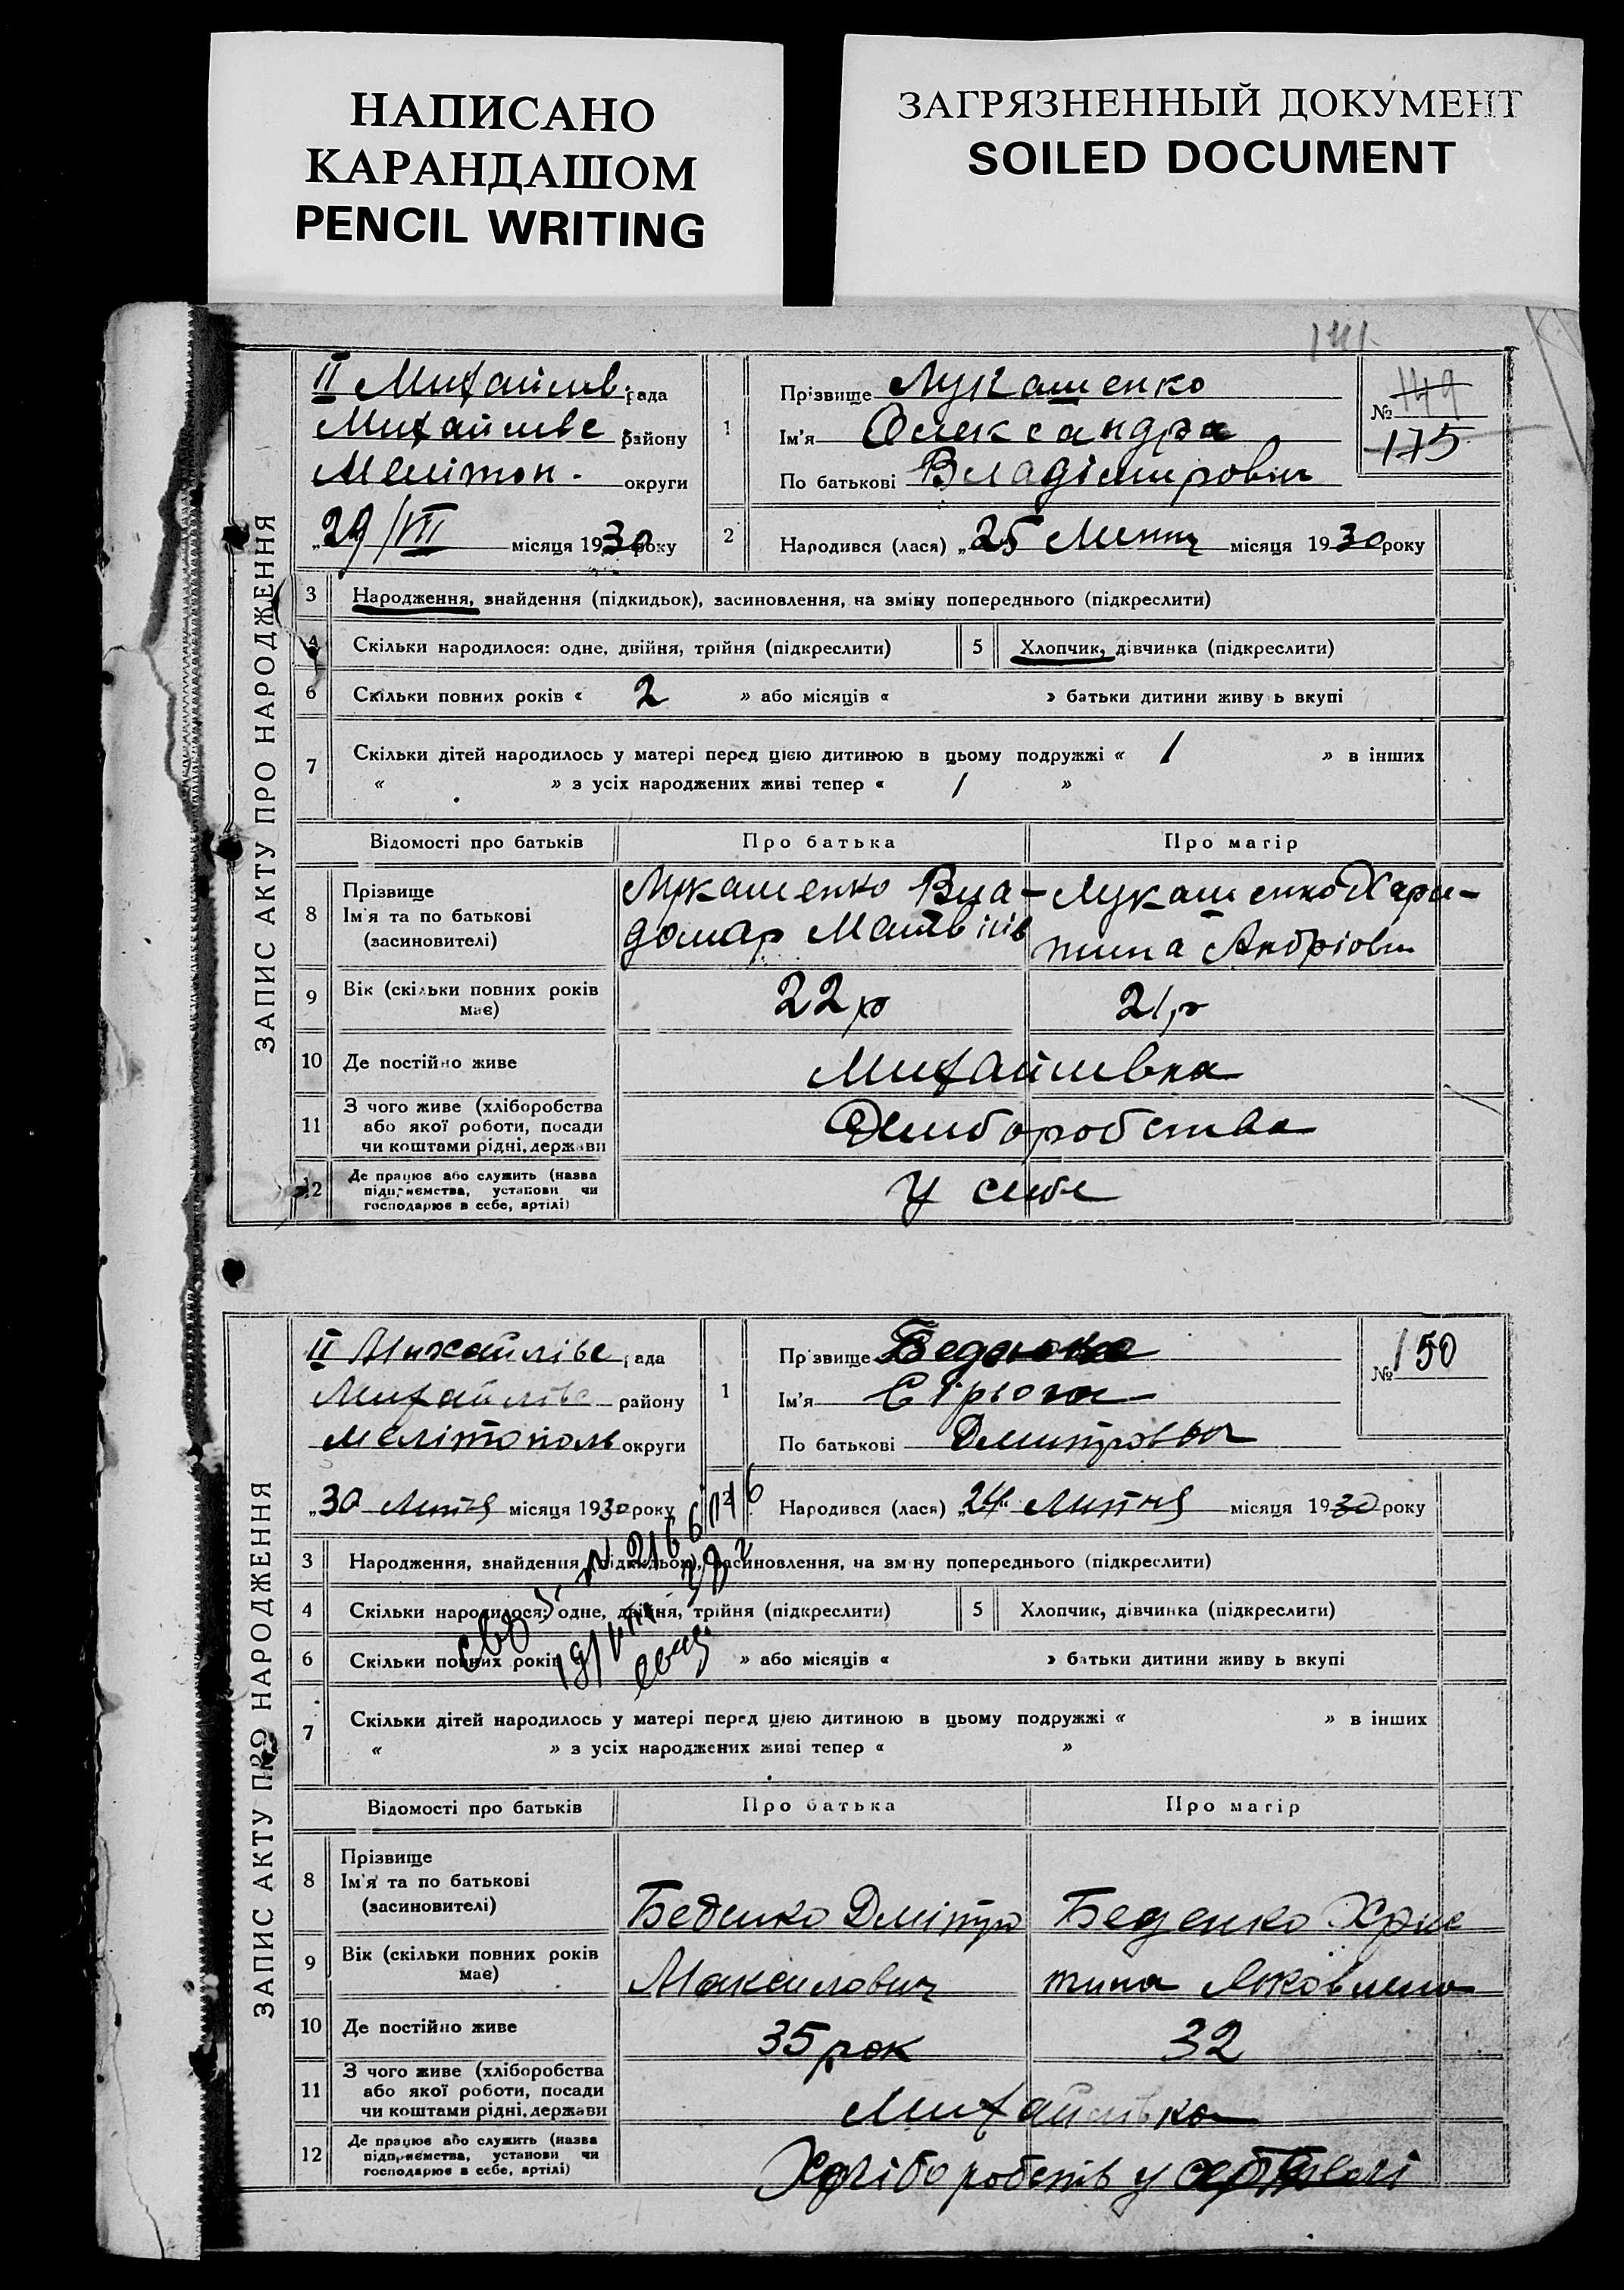 НАПИСАНО
КАРАНДАШОМ
PENCIL WRITING
ЗАГРЯЗНЕННЫЙ ДОКУМЕНТ
SOILED DOCUMENT
141
ЗАПИС АКТУ ПРО НАРОДЖЕННЯ
ІІ Михайлів. рада
Михайлівс району
Меліто​п. округи
29/VII місяця 1930 року
1
Прізвище Лукашенко
Ім'я Олександра
По батькові Владімирович
№ 149
175
2 Народився (лася) „25 Липня місяця 1930 року
3 Народження, знайдення (підкидьок), засиновлення, на зміну попереднього (підкреслити)
4 Скільки народилося: одне, двійня, трійня (підкреслити) 5 Хлопчик, дівчинка (підкреслити)
6 Скільки повних років « 2 » або місяців « » батьки дитини живу ь вкупі
7 Скільки дітей народилось у матері перед цією дитиною в цьому подружжі « 1 » в інших
« » з усіх народжених живі тепер « 1 »
Відомості про батьків Про батька Про матір
8 Прізвище
Ім'я та по батькові
(засиновителі)
Лукашенко Вла-
домар Матвіїв
Лукашенко Хари-
тина Андріовн
9 Вік (скільки повних років
має) 22 р 21 р
10 Де постійно живе Михайлівка
11 З чого живе (хліборобства
або якої роботи, посади
чи коштами рідні, держави
Хлиборобства
12 Де працює або служить (назва
підприємства, установи чи
господарює в себе, артілі)
У себе
ЗАПИС АКТУ ПРО НАРОДЖЕННЯ
ІІ Михайлівс рада
Михайлівс району
Мелітополь округи
„30 Липня місяця 1930 року
1
Прізвище Беденко
Ім'я
По батькові Дмитровна
№ 150
2 Народився (лася) „24 Липня місяця 1930 року
3 Народження, знайдення (підкидьок), засиновлення, на зміну попереднього (підкреслити)
4 Скільки народилося: одне, двійня, трійня (підкреслити) 5 Хлопчик, дівчинка (підкреслити)
6 Скільки повних років « » або місяців « » батьки дитини живу ь вкупі
7 Скільки дітей народилось у матері перед цією дитиною в цьому подружжі « » в інших
« » з усіх народжених живі тепер « »
Відомості про батьків Про батька Про матір
8 Прізвище
Ім'я та по батькові
(засиновителі)
Беденко Дмітро Беденко Хрис
9 Вік (скільки повних років
має) Максимович тина Яковлена
10 Де постійно живе 35 рок 32
11 З чого живе (хліборобства
або якої роботи, посади
чи коштами рідні, держави
Михайлівка
12 Де працює або служить (назва
підприємства, установи чи
господарює в себе, артілі)
Хліборобств у